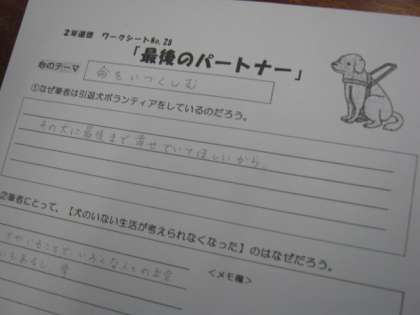 2年道徳 ワークシートNo.28
「最後のパートナー」
心のテーマ 命をいつくしむ
①なぜ筆者は引退犬ボランティアをしているのだろう。
その犬に最後まで幸せでいてほしいから。
②筆者にとって、【犬のいない生活が考えられなくなった】のはなぜだろう。
<メモ欄>